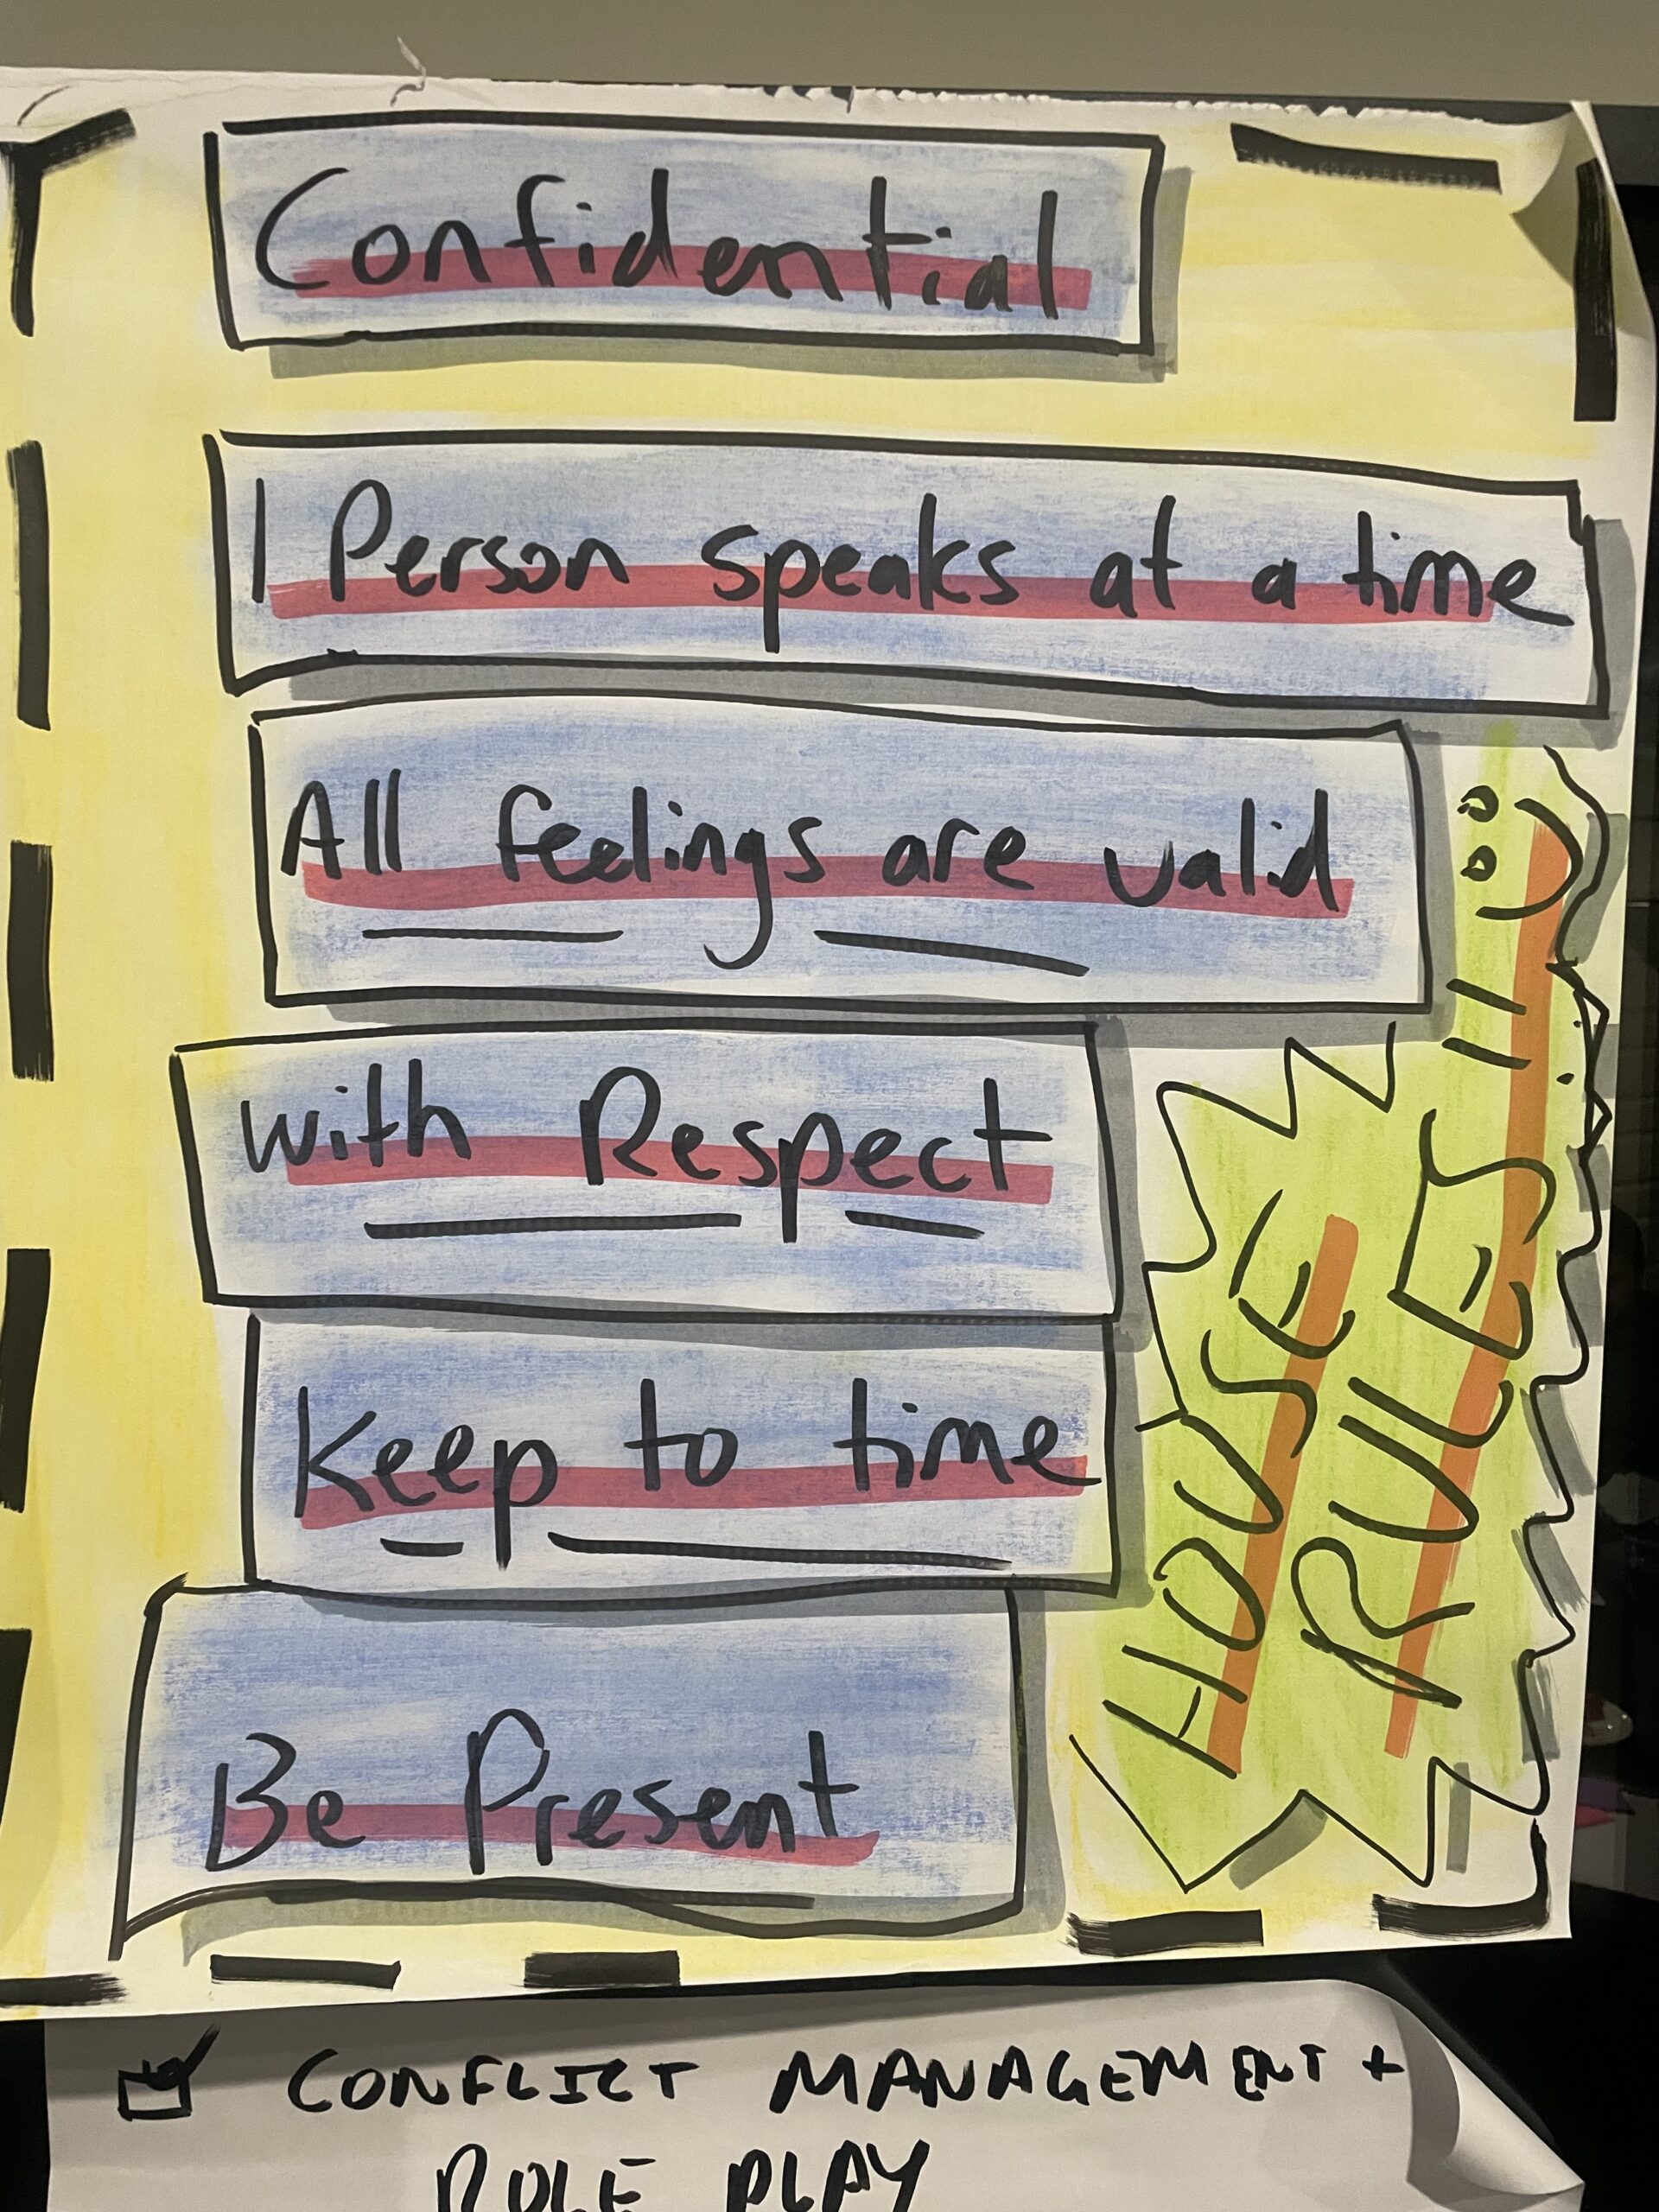 Confidential
1 Person speaks at a time
All feelings are valid
with Respect
Keep to time
Be Present
HOUSE
RULES !! :)
☑ CONFLICT MANAGEMENT +
ROLE PLAY